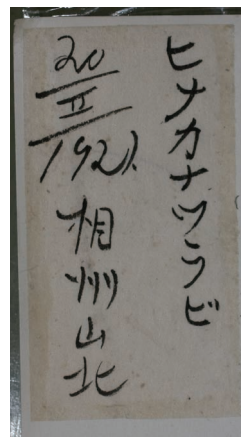 ヒナカナワラビ
20/II/1921. 相州山北